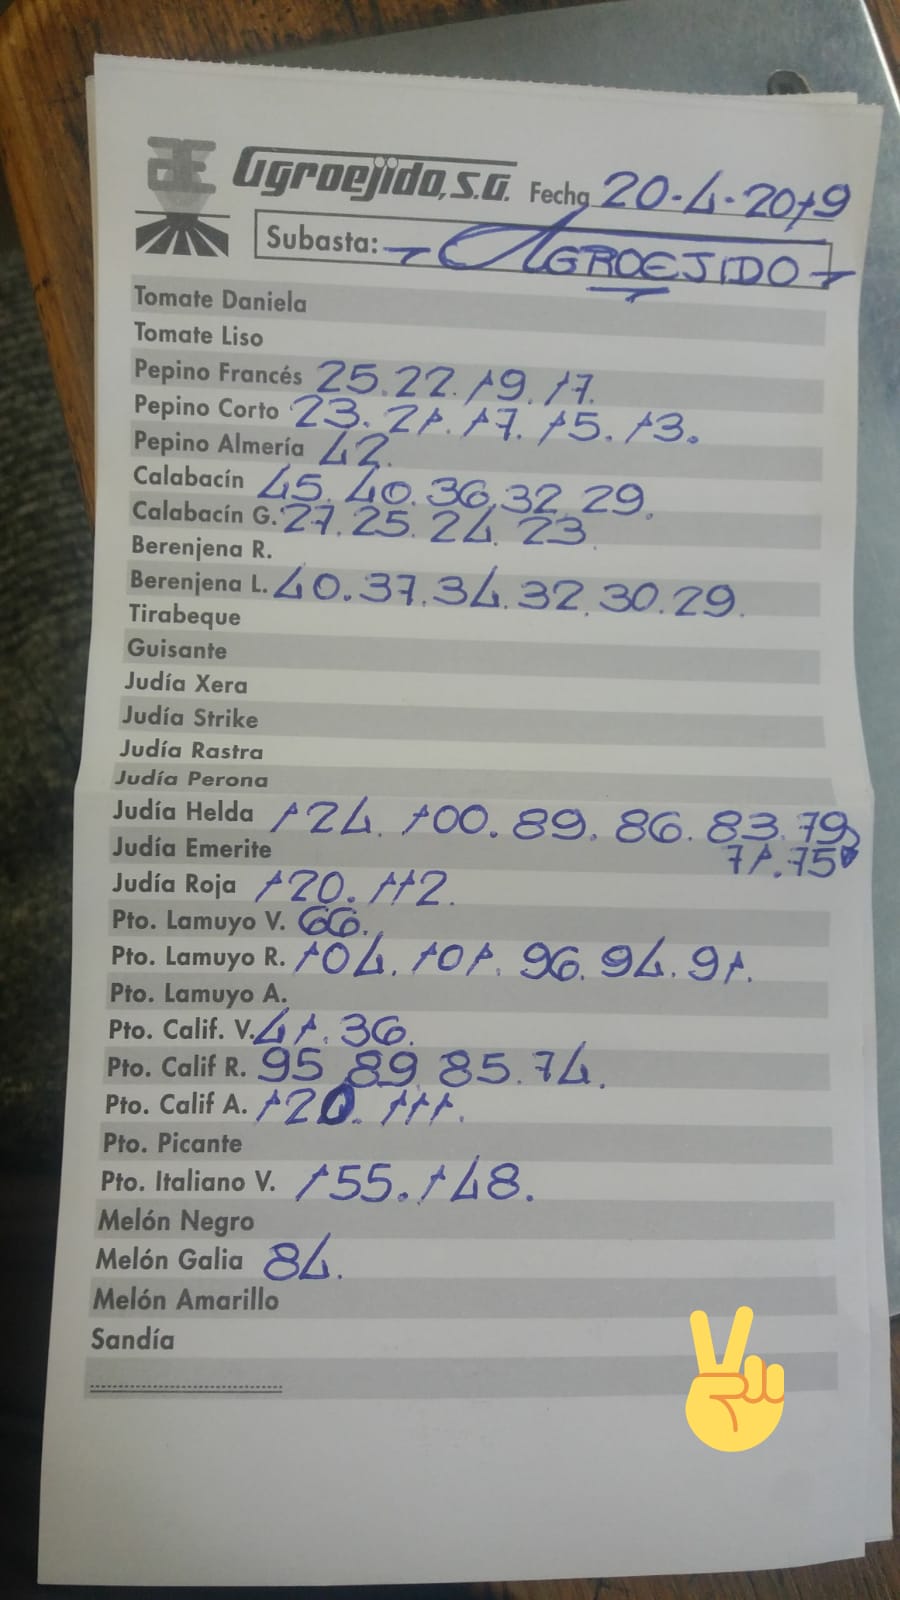 Agroejido, S.A. Fecha 20-4-2019
Subasta: - AGROEJIDO -
Tomate Daniela
Tomate Liso
Pepino Francés 25. 22. 19. 17.
Pepino Corto 23. 21. 17. 15. 13.
Pepino Almería 42.
Calabacín 45. 40. 36. 32. 29.
Calabacín G. 27. 25. 24. 23.
Berenjena R.
Berenjena L. 40. 37. 34. 32. 30. 29.
Tirabeque
Guisante
Judía Xera
Judía Strike
Judía Rastra
Judía Perona
Judía Helda 124. 100. 89. 86. 83. 79
Judía Emerite 71. 75
Judía Roja 120. 112.
Pto. Lamuyo V. 66.
Pto. Lamuyo R. 104. 101. 96. 94. 91.
Pto. Lamuyo A.
Pto. Calif. V. 41. 36.
Pto. Calif R. 95 89 85. 74.
Pto. Calif A. 120. 111.
Pto. Picante
Pto. Italiano V. 155. 148.
Melón Negro
Melón Galia 84.
Melón Amarillo
Sandía